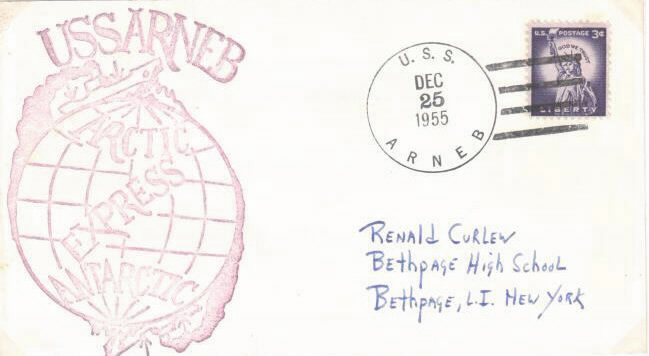 USS ARNEB
ARCTIC
EXPRESS
ANTARCTIC
U. S. S.
DEC
25
1955
ARNEB
U.S. POSTAGE 3¢
IN GOD WE TRUST
LIBERTY
Renald Curlew
Bethpage High School
Bethpage, L.I. New York